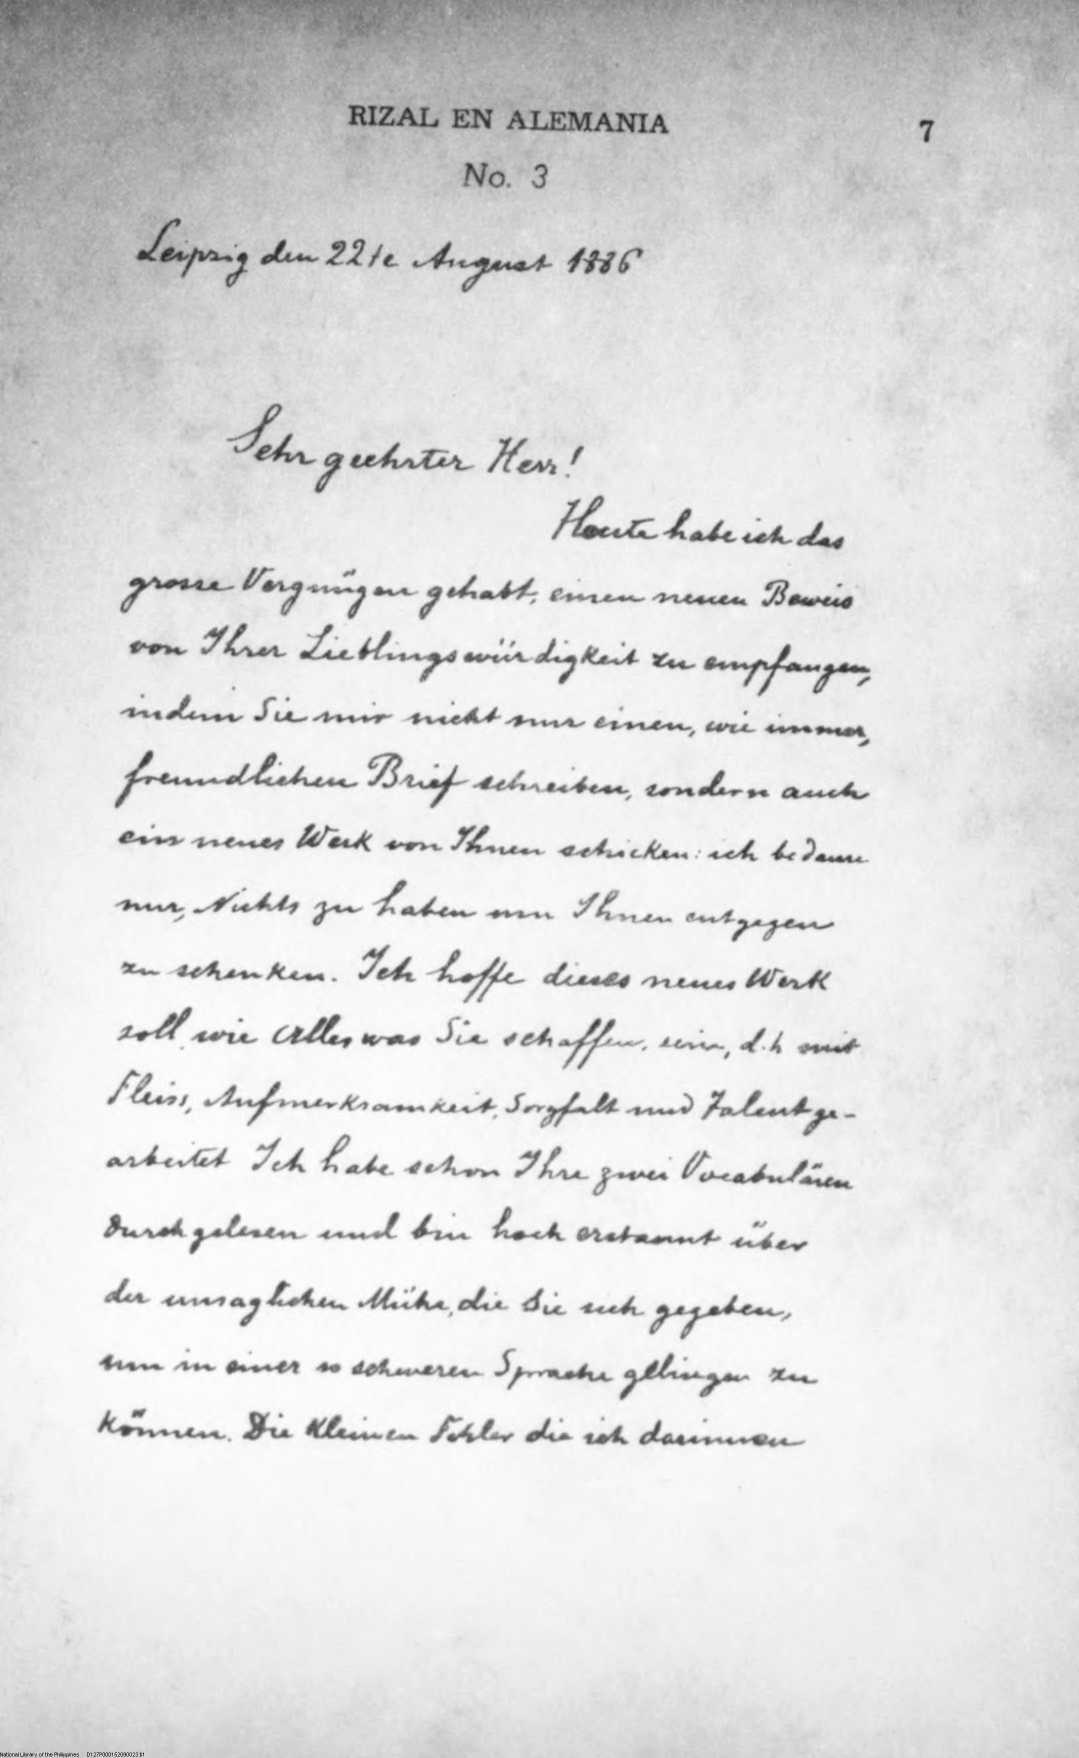 RIZAL EN ALEMANIA
7
No. 3
Leipzig den 22te August 1886
Sehr geehrter Herr!
Heute habe ich das
grosse Vergnügen gehabt, einen neuen Beweis
von Ihrer Lieblingswürdigkeit zu empfangen,
indem Sie mir nicht nur einen, wie immer,
freundlichen Brief schreiben, sondern auch
ein neues Werk von Ihnen schicken: ich bedaure
nur, Nichts zu haben um Ihnen entgegen
zu schenken. Ich hoffe dieses neues Werk
soll, wie Alles was Sie schaffen, sein, d.h mit
Fleiss, Aufmerksamkeit, Sorgfalt und Talent ge-
arbeitet Ich habe schon Ihre zwei Vocabulären
durchgelesen und bin hoch erstaunt über
der unsaglichen Mühe, die Sie sich gegeben,
um in einer so schweren Sprache gelingen zu
können. Die kleinen Fehler die ich darinnen
National Library of the Philippines